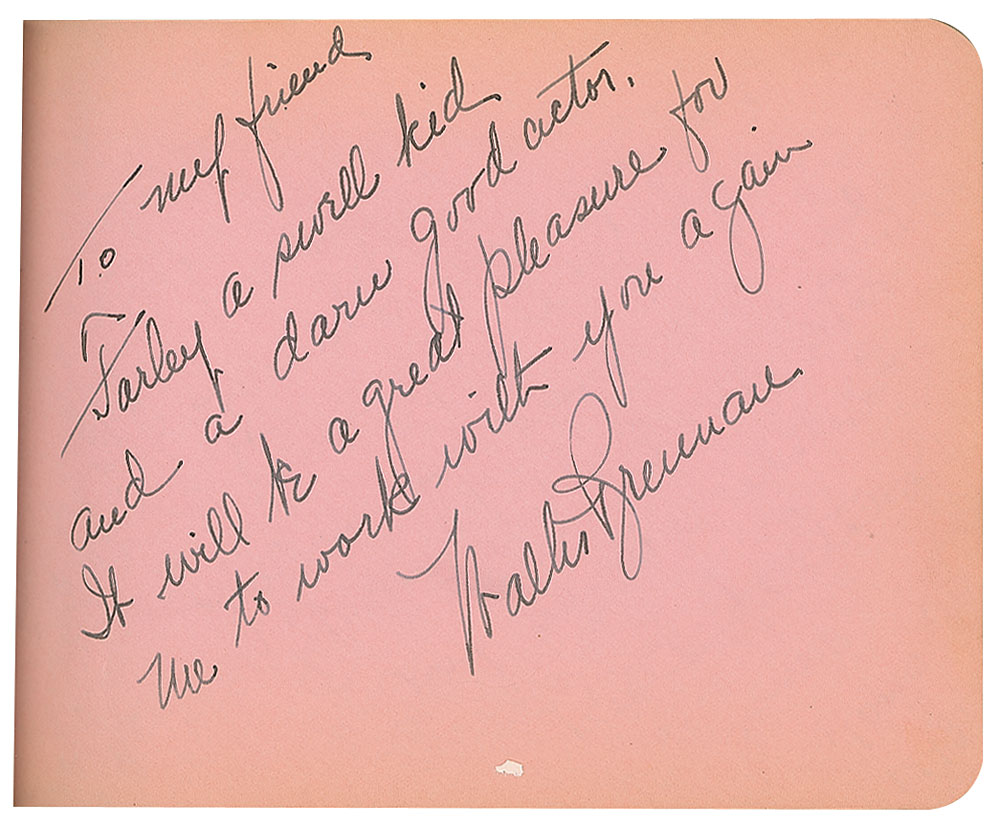 To my friend
Farley a swell kid
and a darn good actor.
It will be a great pleasure for
me to work with you again
Walter Brennan